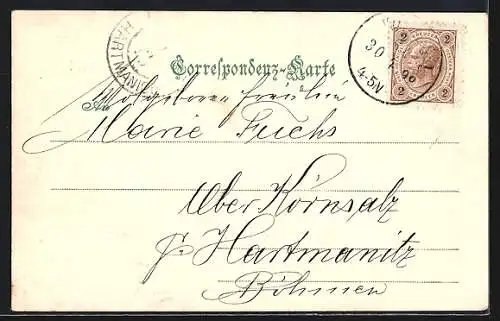 HARTMANI
Correspondenz-Karte
2 KREUZER 2
30
4-5N
2 2
An Wolgeboren Fräulein
Marie Fuchs
Über Körnsalz
Hartmanitz
Böhmen